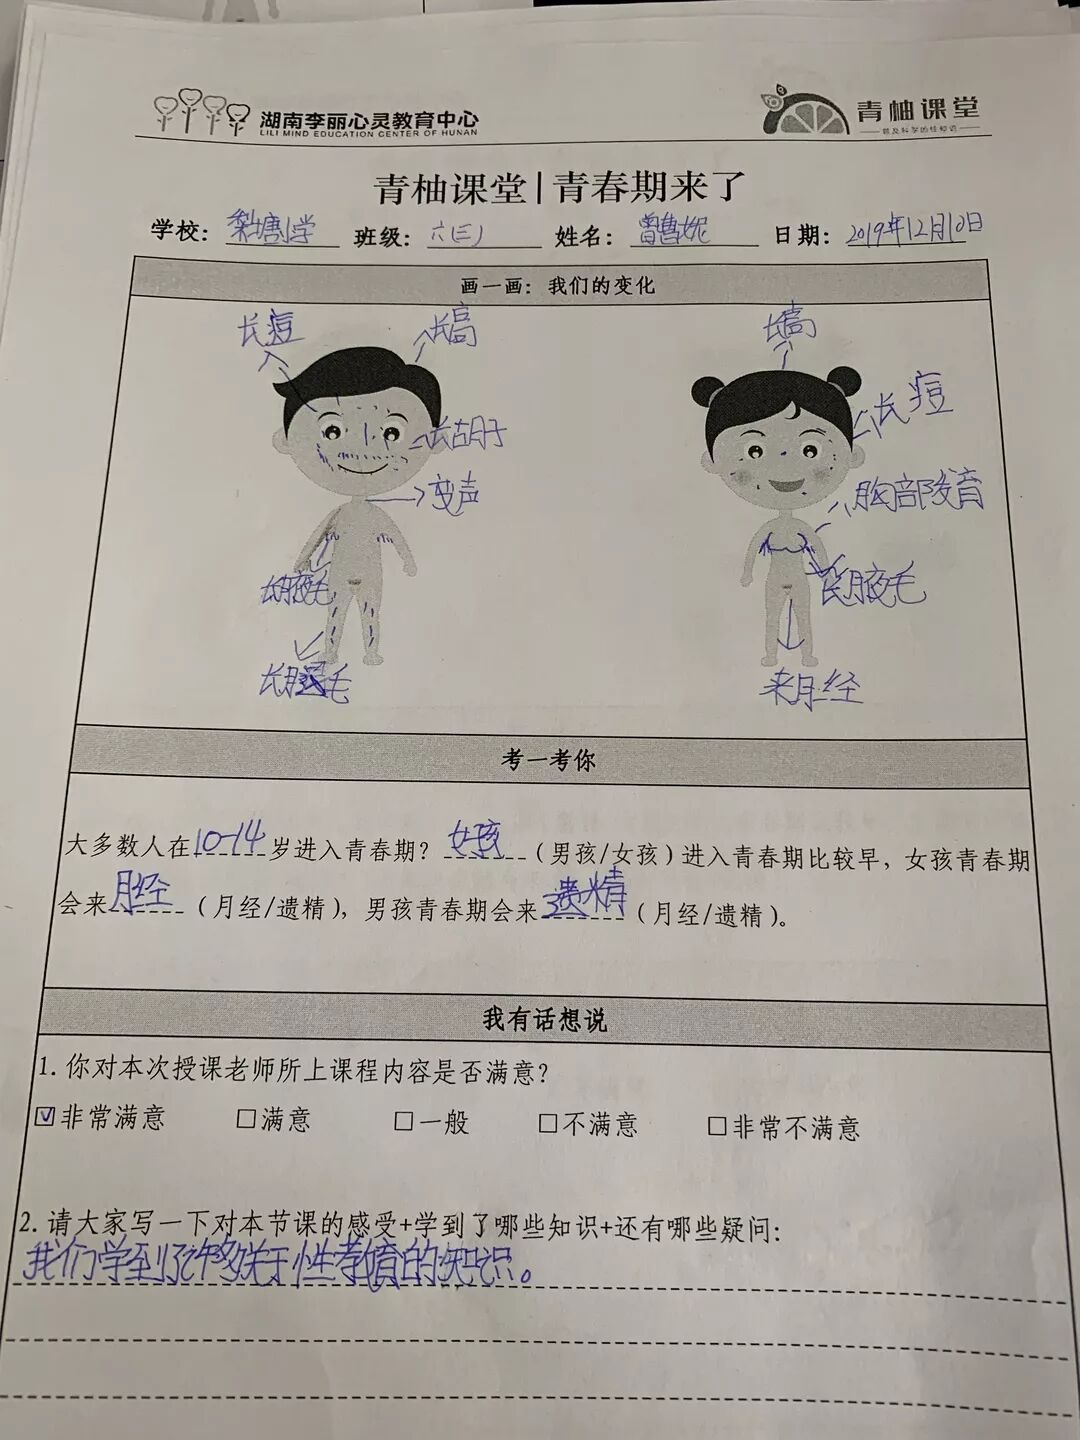 湖南李丽心灵教育中心
LILI MIND EDUCATION CENTER OF HUNAN
青柚课堂
普及科学的性知识
青柚课堂|青春期来了
学校：梨塘小学 班级：六(三) 姓名：曾鲁妮 日期：2019年12月10日
画一画：我们的变化
长痘
长高
长胡子
变声
长腋毛
长腿毛
长高
长痘
胸部发育
长腋毛
来月经
考一考你
大多数人在10-14岁进入青春期？女孩（男孩/女孩）进入青春期比较早，女孩青春期
会来月经（月经/遗精），男孩青春期会来遗精（月经/遗精）。
我有话想说
1. 你对本次授课老师所上课程内容是否满意？
☑非常满意 □满意 □一般 □不满意 □非常不满意
2. 请大家写一下对本节课的感受+学到了哪些知识+还有哪些疑问：
我们学到了许多关于性教育的知识。